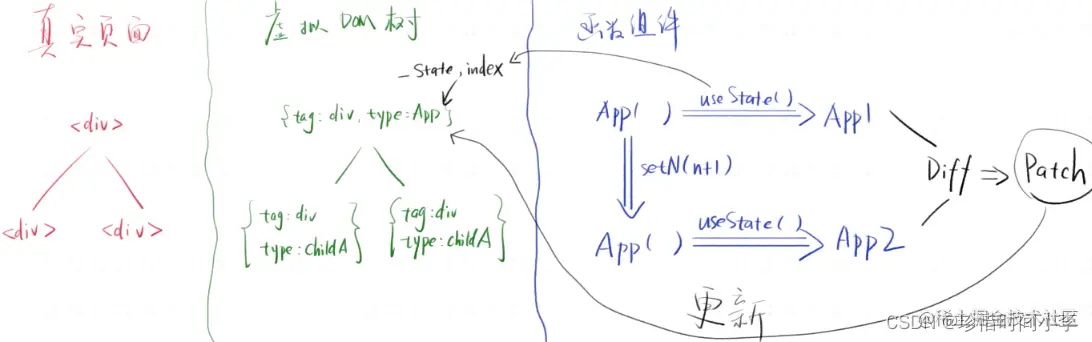 真实页面
<div>
<div>
<div>
虚拟 DOM 树
_State, index
{tag: div, type: App}
{tag: div
type: childA}
{tag: div
type: childA}
函数组件
App( ) useState() App1
setN(n+1)
App( ) useState() App2
Diff ⇒ Patch
更新
@稀土掘金技术社区